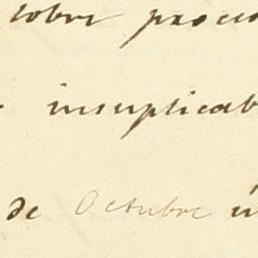 sobre proce
insuplicab
de Octubre ú